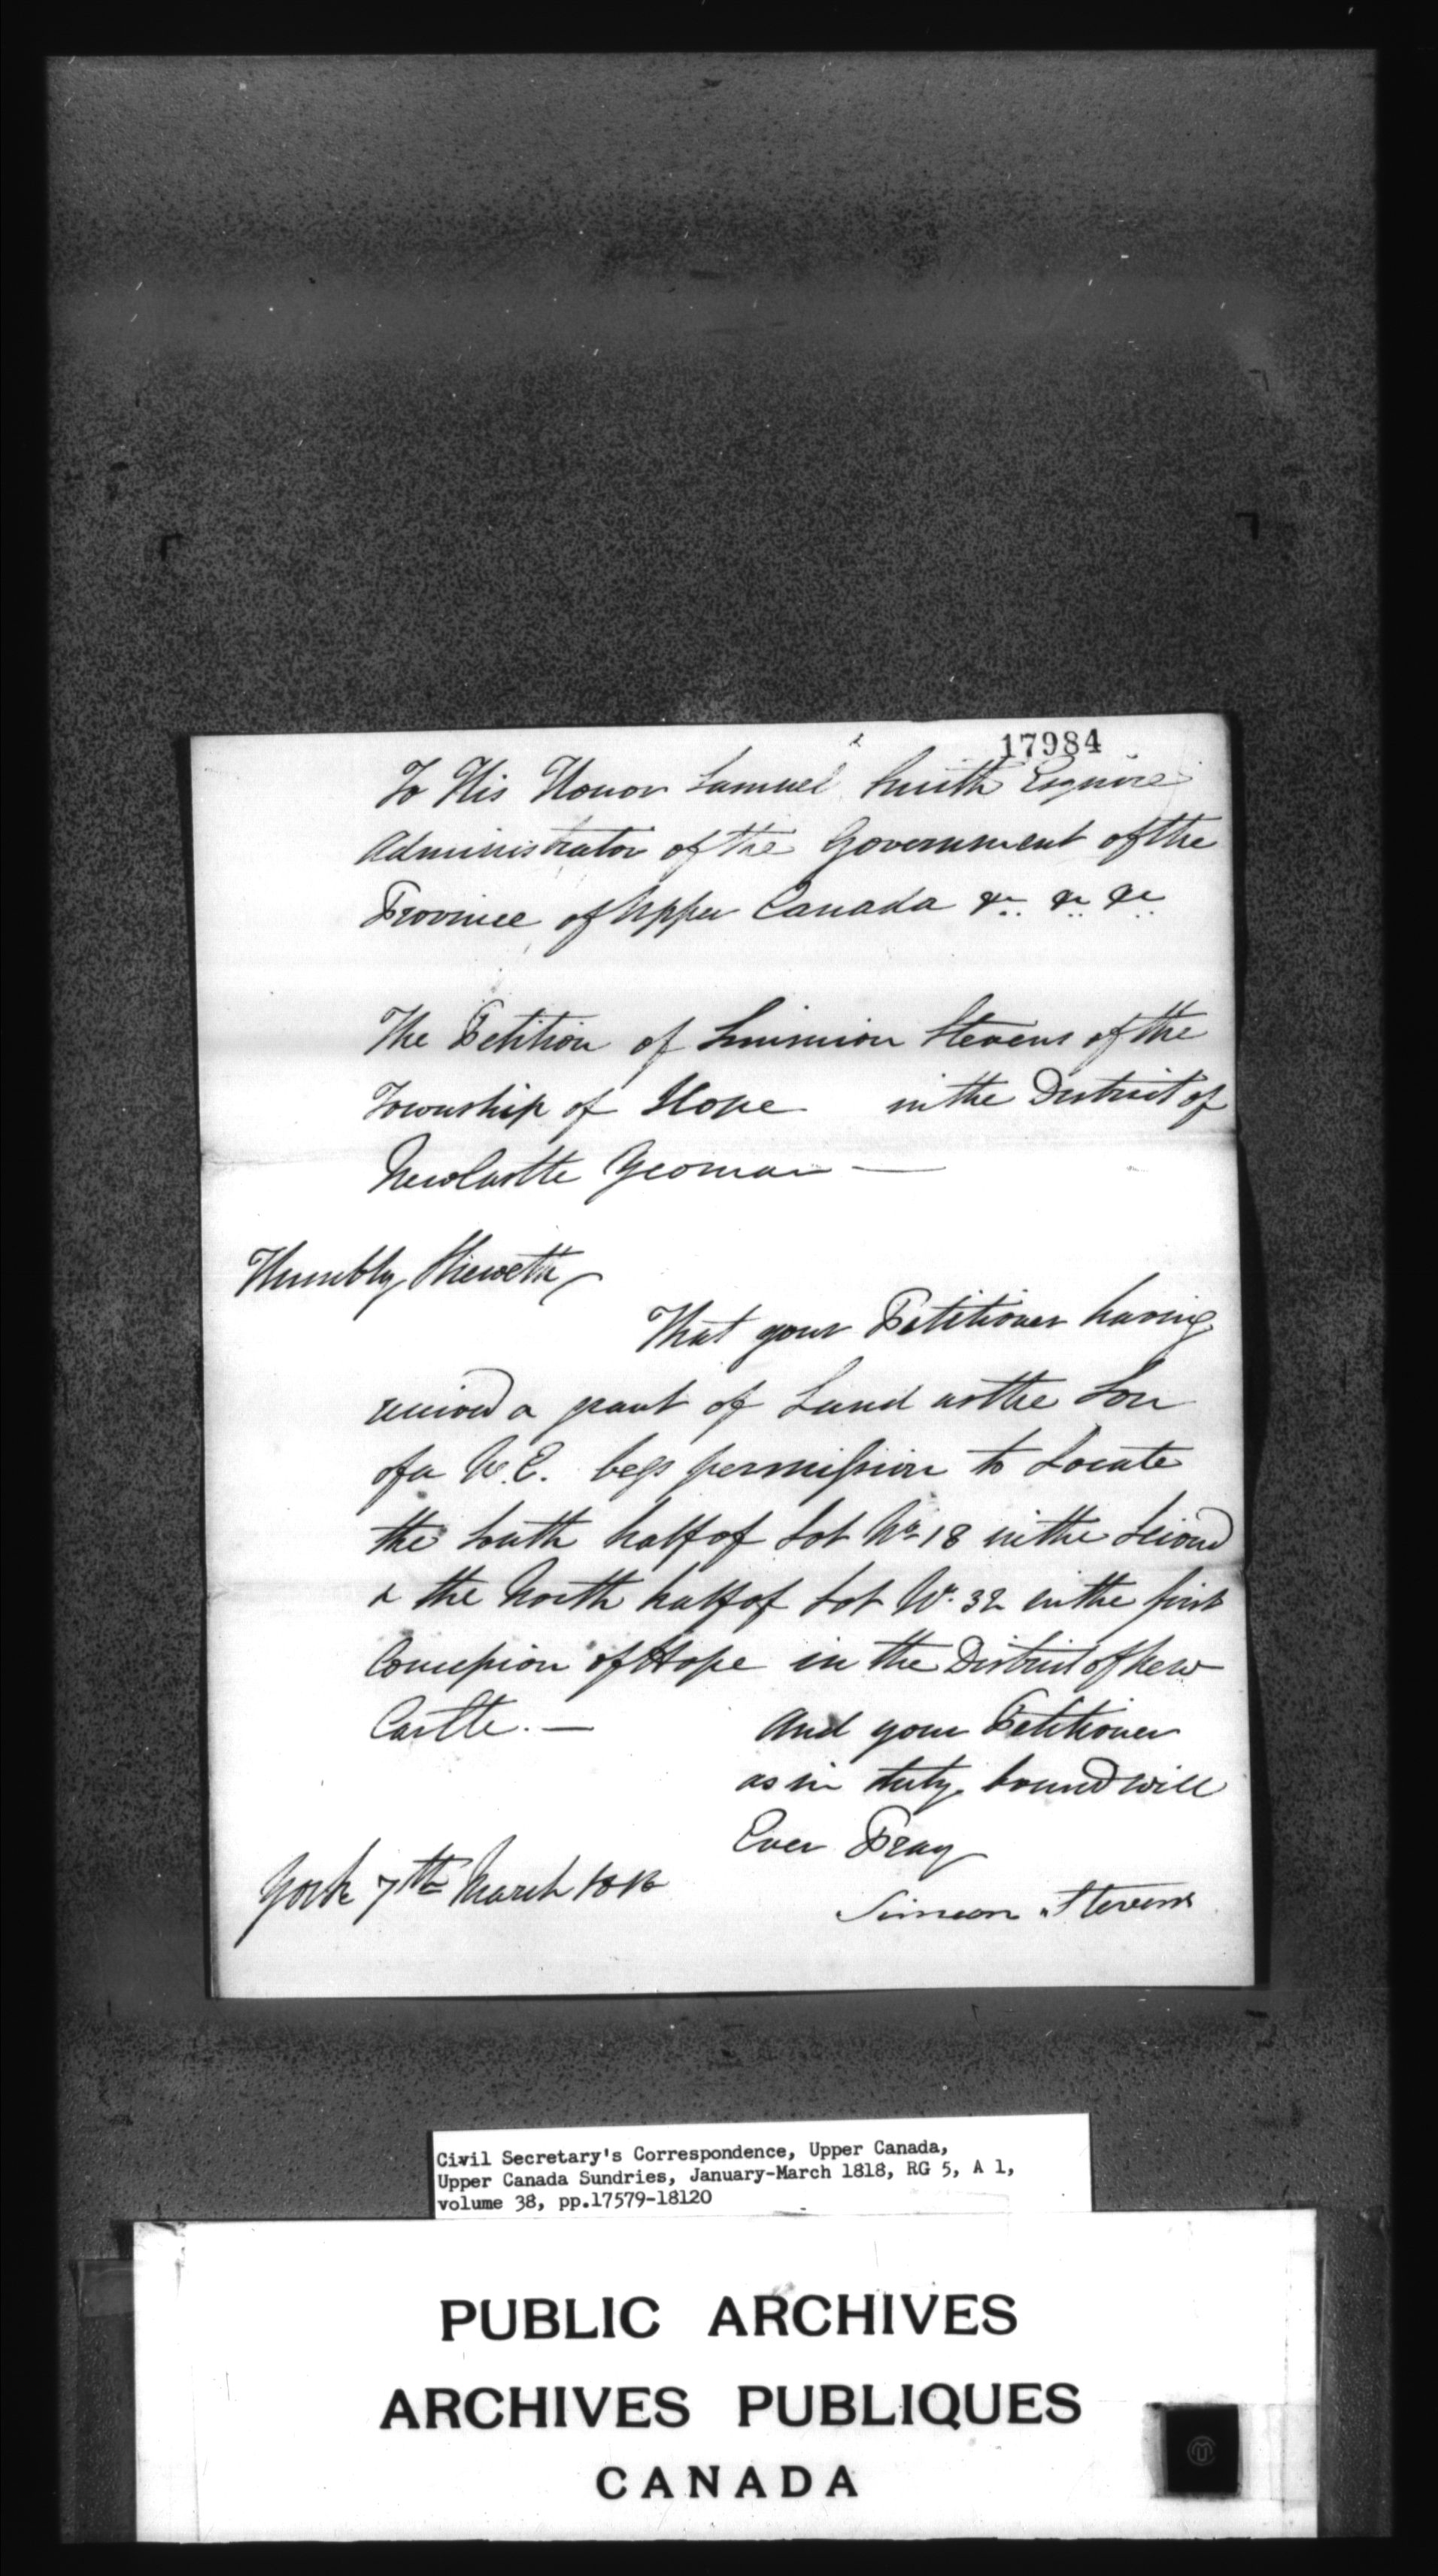 17984
To His Honor Samuel Smith Esquire
Administrator of the Government of the
Province of Upper Canada &c. &c. &c.
The Petition of Simmion Stevens of the
Township of Hope in the District of
NewCastle Yeoman —
Humbly Sheweth
That your Petitioner having
received a grant of Land as the Son
of a U.E. begs permission to Locate
the South half of Lot No. 18 in the Second
& the North half of Lot No. 32 in the first
Concession of Hope in the District of New
Castle. —
And your Petitioner
as in duty bound will
Ever Pray
York 7th March 1818
Simeon Stevens
Civil Secretary's Correspondence, Upper Canada,
Upper Canada Sundries, January-March 1818, RG 5, A 1,
volume 38, pp.17579-18120
PUBLIC ARCHIVES
ARCHIVES PUBLIQUES
CANADA